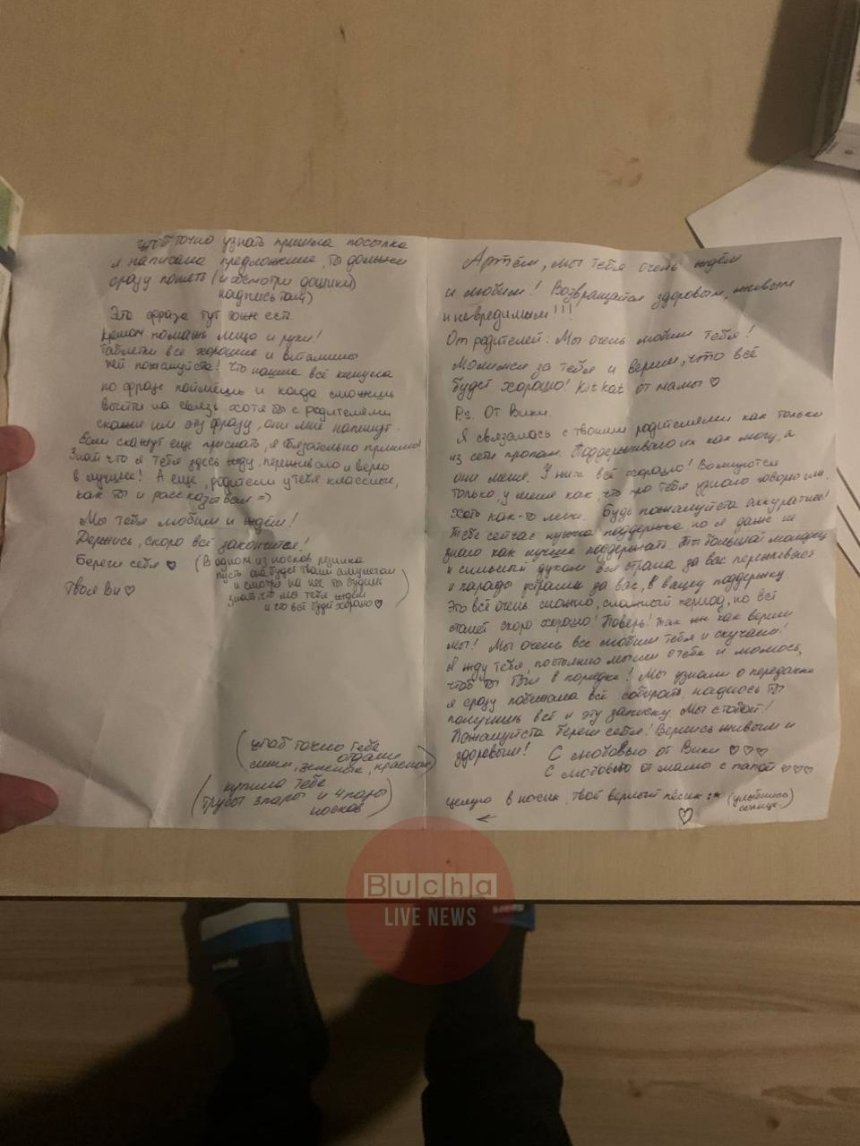 Артём, мы тебя очень ждём
и любим! Возвращайся здоровым, живым
и невредимым!!!
От родителей: Мы очень любим тебя!
Молимся за тебя и верим, что всё
будет хорошо! Kitkat от мамы ♡
P.s. От Вики
Я связалась с твоими родителями как только
из сети пропал. Поддерживаю их как могу, а
они меня. У них всё хорошо! Волнуются
только, у меня как что про тебя узнаю говорю им.
Хоть как-то легче. Будь пожалуйста аккуратнее!
Тебе сейчас нужна поддержка, но я даже не
знаю как лучше поддержать. Ты большой молодец
и сильный духом вся страна за вас переживает
и парады устраив за вас, в вашу поддержку
Это всё очень сложно, сложный период, но всё
станет скоро хорошо! Поверь! Так же как верим
мы! Мы очень все любим тебя и скучаем!
Я жду тебя, постоянно мысли о тебе и молюсь,
чтоб ты был в порядке! Мы узнали о передачке
я сразу побежала всё собирать, надеюсь ты
получишь всё и эту записку Мы с тобой!
Пожалуйста береги себя! Вернись живым и
здоровым! С любовью от Вики ♡♡♡
С любовью от мамы с папой ♡♡♡
целую в носик, твой верный пёсик :* (улыбнись
солнце)
♡
←
чтоб точно узнать пришла посылка
я написала предложение, ты должен
сразу понять (и осмотри дошики
надпись там)
Это фраза тут тоже есть.
Кремом помажь лицо и руки!
Таблетки все хорошие и витамины
пей пожалуйста! Что нашла всё кинула
по фразе поймёшь и когда сможешь
выйти на связь хотя бы с родителями
скажи им эту фразу, они мне напишут.
Если скажут еще прислать, я обязательно пришлю!
Знай что я тебя здесь жду, переживаю и верю
в лучшее! А еще, родители у тебя классные,
как ты и рассказывал =)
Мы тебя любим и ждём!
Держись, скоро всё закончится!
Береги себя ♡ (В одном из носков резинка
пусть она будет твоим амулетом
и смотря на неё ты будешь
знать, что мы тебя ждём
и что всё будет хорошо ♡)
Твоя Ви ♡
(чтоб точно тебе
отдали
синие, зеленые, красное)
(купила тебе
трусы 3 пары и 4 пары
носков)
Bucha
LIVE NEWS